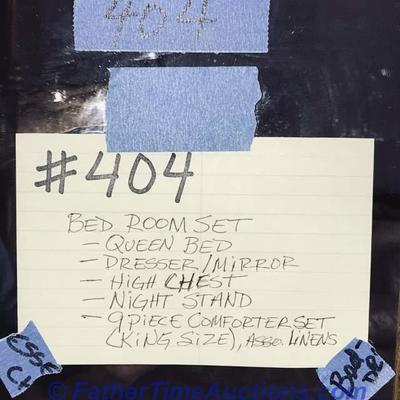 404
#404
BED ROOM SET
- QUEEN BED
- DRESSER/MIRROR
- HIGH CHEST
- NIGHT STAND
- 9 PIECE COMFORTER SET
(KING SIZE), ASSO. LINENS
© FatherTimeAuctions.com